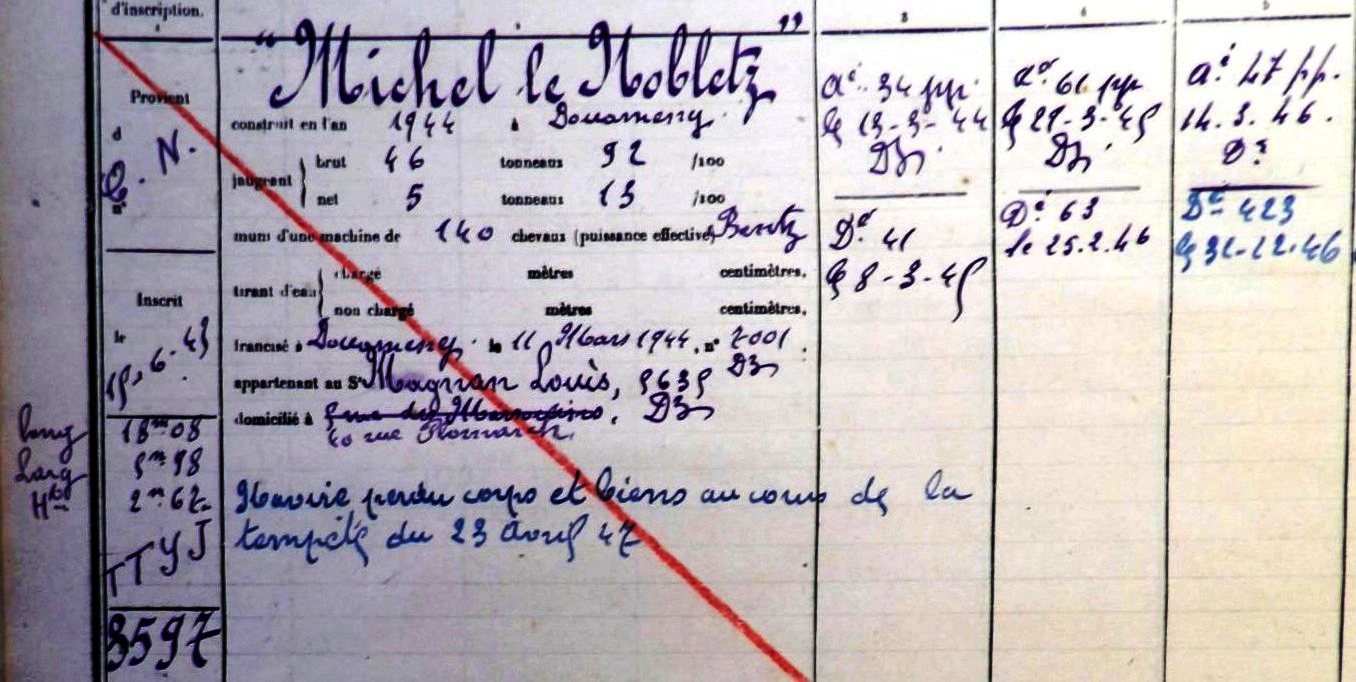 d'inscription.
3
4
5
Provient
d
C. N.
n°
Inscrit
le
15. 6. 43
long 18 m 08
Larg 5 m 98
Hr 2 m 62
TTYJ
8597
"Michel le Nobletz"
construit en l'an 1944 à Douarnenez
jaugeant
brut 46 tonneaux 92 /100
net 5 tonneaux 13 /100
muni d'une machine de 140 chevaux (puissance effective) Bentz
tirant d'eau
chargé mètres centimètres.
non chargé mètres centimètres.
francisé à Douarnenez. le 11 Mars 1944, n° 2001.
Dz
appartenant au Sr Magnan Louis, 5635
domicilié à Dz
40 rue Plomarch.
Navire perdu corps et biens au cours de la
tempête du 23 Avril 47
34
13-3-44
Dz.
Dº 41
le 8-3-45
66
le 29-3-45
Dz.
Dº 63
le 25.2.46
47
14.3.46.
Dº
Dº 423
le 31-12-46